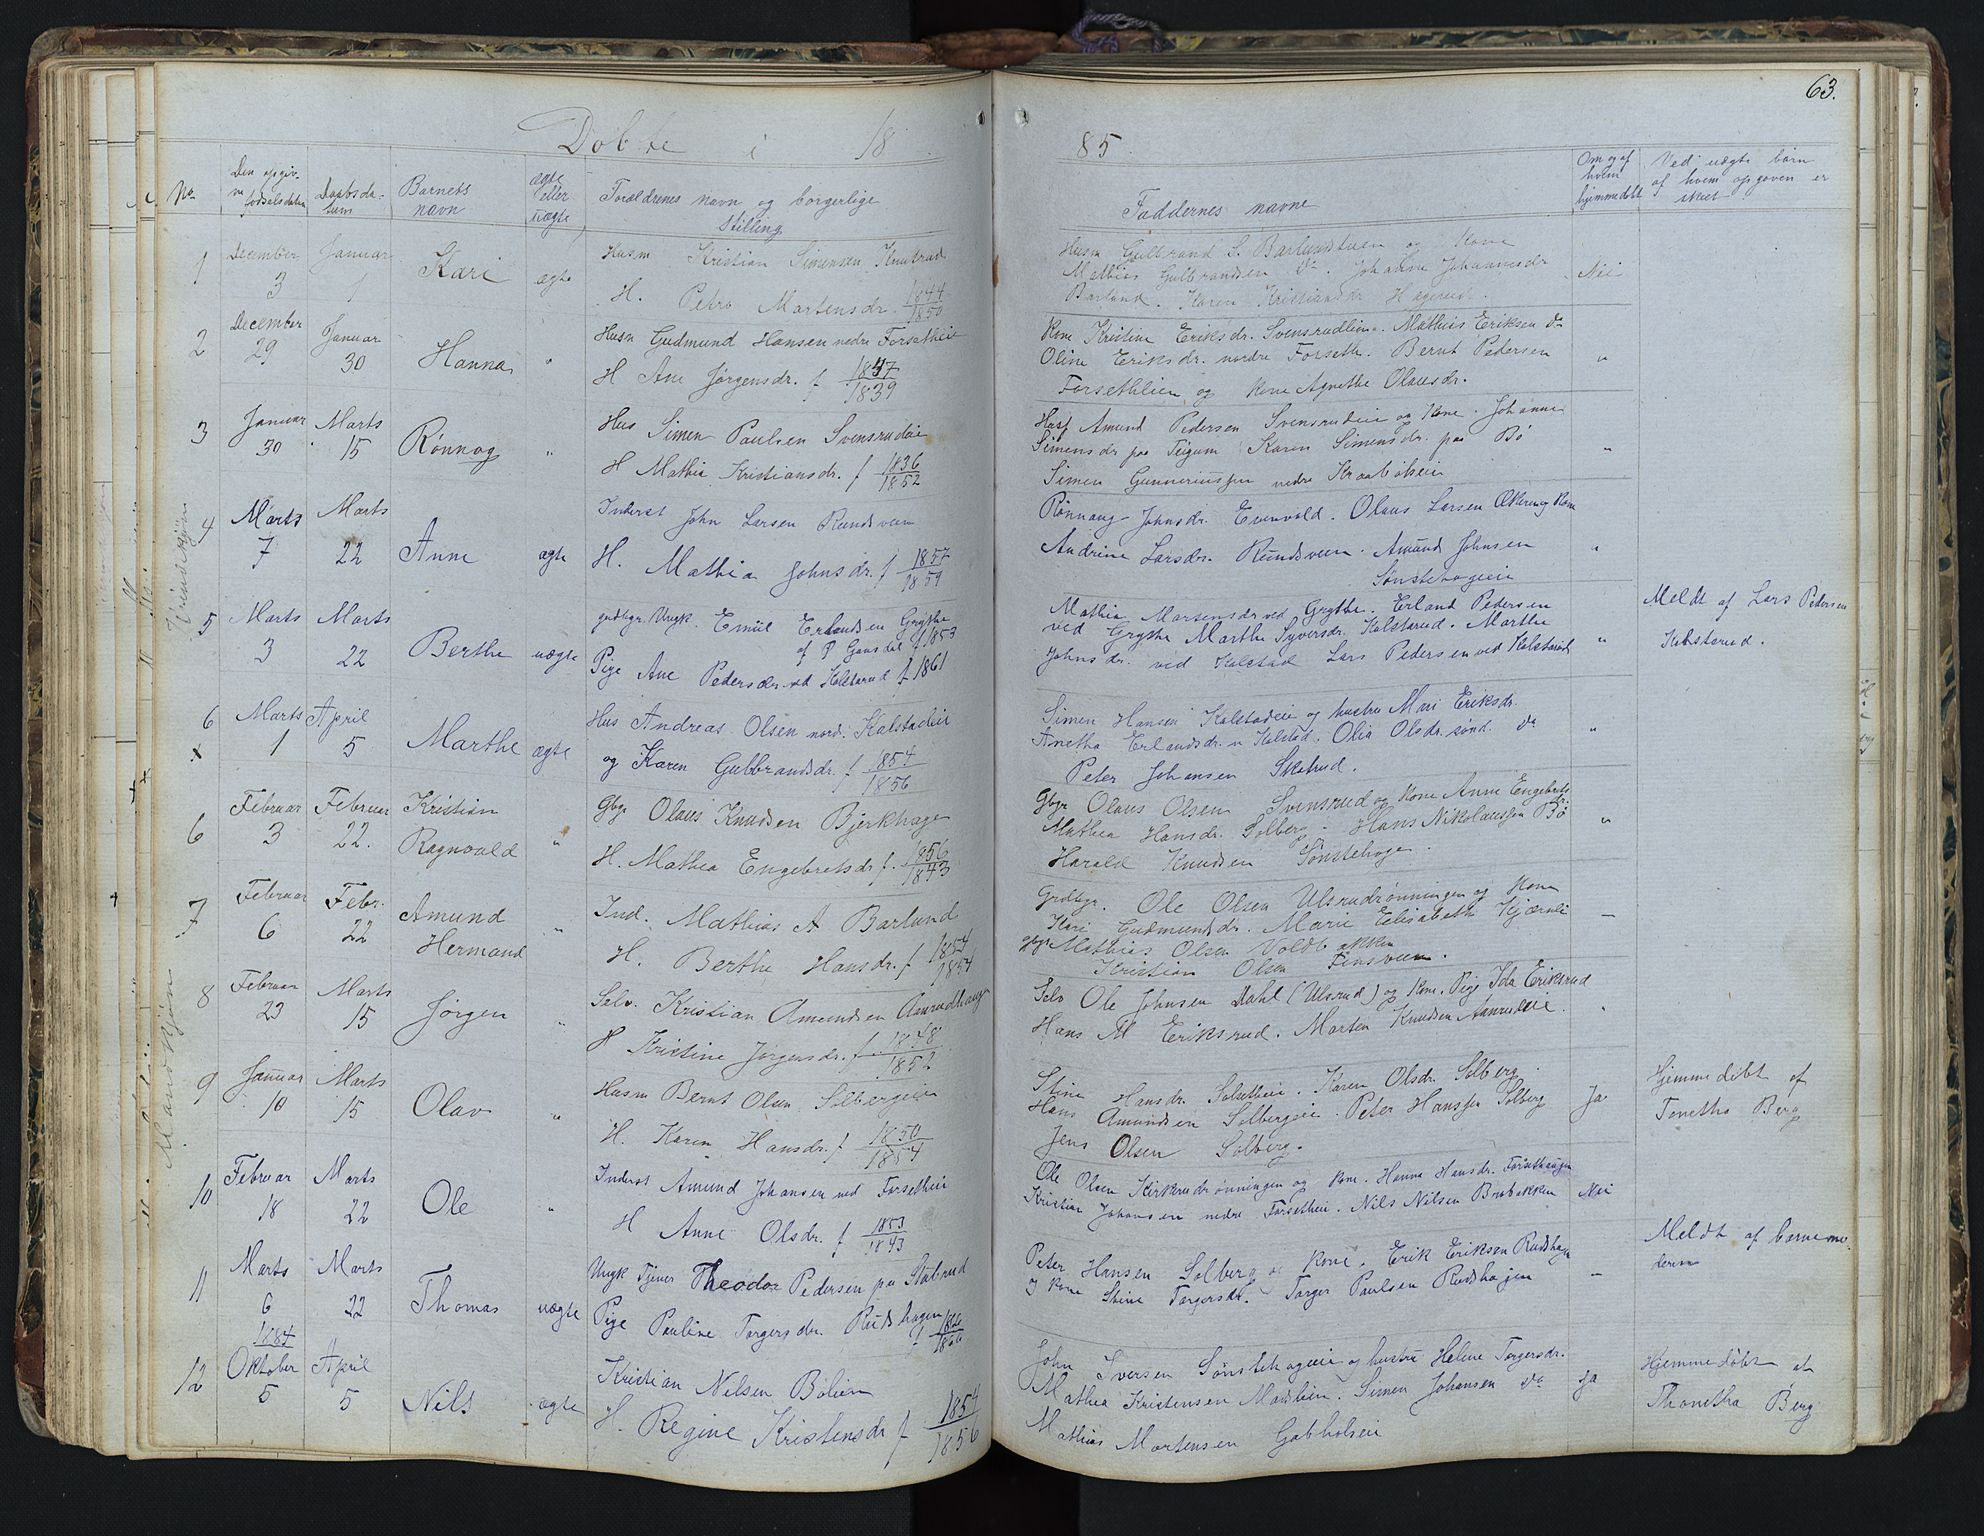 63.
Døbte i 18 85
No
Den opgivne fødselsdatum
Daabsdatum
Barnets navn
ægte eller uægte
Forældrenes navn og borgerlige stilling
Faddernes navne
Om og af hvem hjemmedøbt
Ved uægte børn af hvem opgaven er skeet
Kvindekjøn
1 December 3 Januar 1 Kari ægte
Husm Kristian Simensen Knutrud
H. Petra Martensdr. 1844 1850
Husm Gulbrand S. Barlundstuen og Kone
Mathias Gulbrandsen do. Johanne Johannesdr
Barlund. Karen Kristiansdr Hagerud.
Nei
2 December 29 Januar 30 Hanna "
Husm Gudmund Hansen nedre Forsetheie
H Ane Jørgensdr. f 1837 1839
Kone Kristine Eriksdr. Svensrudlien. Mathias Eriksen do
Oline Eriksdr. nordre Forseth. Bernt Pedersen
Forsethlien og Kone Agnethe Olausdr.
"
3 Januar 30 Marts 15 Rønnog "
Hus Simen Paulsen Svensrudeie
H Mathia Kristiansdr. f 1836 1852
Husf Amund Pedersen Svensrudeie og Kone. Johanne
Simensdr paa Teigum Karen Simensdr. paa Bø
Simen Gunneriussen nedre Kraabølseie
"
4 Marts 7 Marts 22 Anne ægte
Inderst John Larsen Rundsveen
H. Mathia Johnsdr. f 1857 1859
Rønnaug Johnsdr. Evenvold. Olaus Larsen Økeren og Kone
Andrine Larsdr. Rundsveen. Amund Johnsen
Sønstehageeie
"
5 Marts 3 Marts 22 Berthe uægte
gudbgr. Ungk. Emiil Erlandsen Grythe
af P Gausdal f 1853
Pige Ane Pedersdr ved Kalstarud f 1861
Mathia Mortensdr ved Grythe. Erland Pedersen
ved Grythe Marthe Syversdr. Kalstarud. Marthe
Johnsdr. ved Kalstad Lars Pedersen ved Kalstarud
"
Meldt af Lars Pedersen
Kalstarud.
6 Marts 1 April 5 Marthe ægte
Hus Andreas Olsen nord. Kalstadeie
og Karen Gulbrandsdr. f 1854 1856
Simen Hansen Kalstadeie og hustru Mari Eriksdr.
Anetha Erlandsdr. n Kalstad. Olia Olsdr. sønd. do
Peter Johansen Skatrud.
"
Mandkjøn
6 Februar 3 Februar 22. Kristian Ragnvald "
Gbgr Olaus Knudsen Bjerkhage
H. Mathea Engebretsdr f. 1856 1843
Gbgr Olaus Olsen Svensrud og Kone Anne Engebretsdr.
Mathea Hansdr. Solberg. Hans Nikolaussen Bø
Harald Knudsen Sønstehage.
"
7 Februar 6 Febr. 22 Amund Hermand "
Ind. Mathias A Barlund
H. Berthe Hansdr. f 1854 1854
Grdbgr. Ole Olsen Ulsrudrønningen og Kone
Kari Gudmundsdr. Marie Elisabeth Kjærnli
gbgr Mathias Olsen Voldbakken
Kristian Olsen Finsveen.
8 Februar 23 Marts 15 Jørgen "
Selv. Kristian Amundsen Aanrudhauge
H Kristine Jørgensdr. f. 1848 1852
Selv Ole Johnsen Dahl (Ulsrud) og Kone. Pige Ida Eriksrud
Hans M Eriksrud. Morten Knudsen Aanrudeie.
"
9 Januar 10 Marts 15 Olav "
Husm Bernt Olsen Solbergeie
H. Karen Hansdr. f 1850 1854
Stine Hansdr. Solsetheie. Karen Olsdr. Solberg.
Hans Amundsen Solbergeie. Peter Hanssen Solberg
Jens Olsen Solberg.
Ja
Hjemmedøbt af
Tonetha Berg
10 Februar 18 Marts 22 Ole "
Inderst Amund Johansen ved Forsetheie
H Anne Olsdr. f 1853 1843
Ole Olsen Kirkerudrønningen og Kone. Hanna Hansdr. Forsethaugen
Kristian Johansen nedre Forsetheie. Nils Nilsen Brubakken
Nei
11 Marts 6 Marts 22 Thomas uægte
Ungk Tjener Theodor Pedersen paa Stabrud
Pige Pauline Torgersdr. Rudshagen
Peter Hansen Solberg og Kone. Erik Eriksen Rudshagen
og Kone Stine Torgersdr. Torger Paulsen Rudshagen
Meldt af barnemoderen
12 1884 Oktober 5 April 5 Nils ægte
Kristian Nilsen Bølien
H. Regine Kristensdr f 1854 1856
John Iversen Sønstehageeie og hustru Helene Torgersdr.
Mathea Kristensen Madslien. Simen Johansen do
Mathias Mortensen Gabholseie
Ja
Hjemmedøbt af
Thonetha Berg